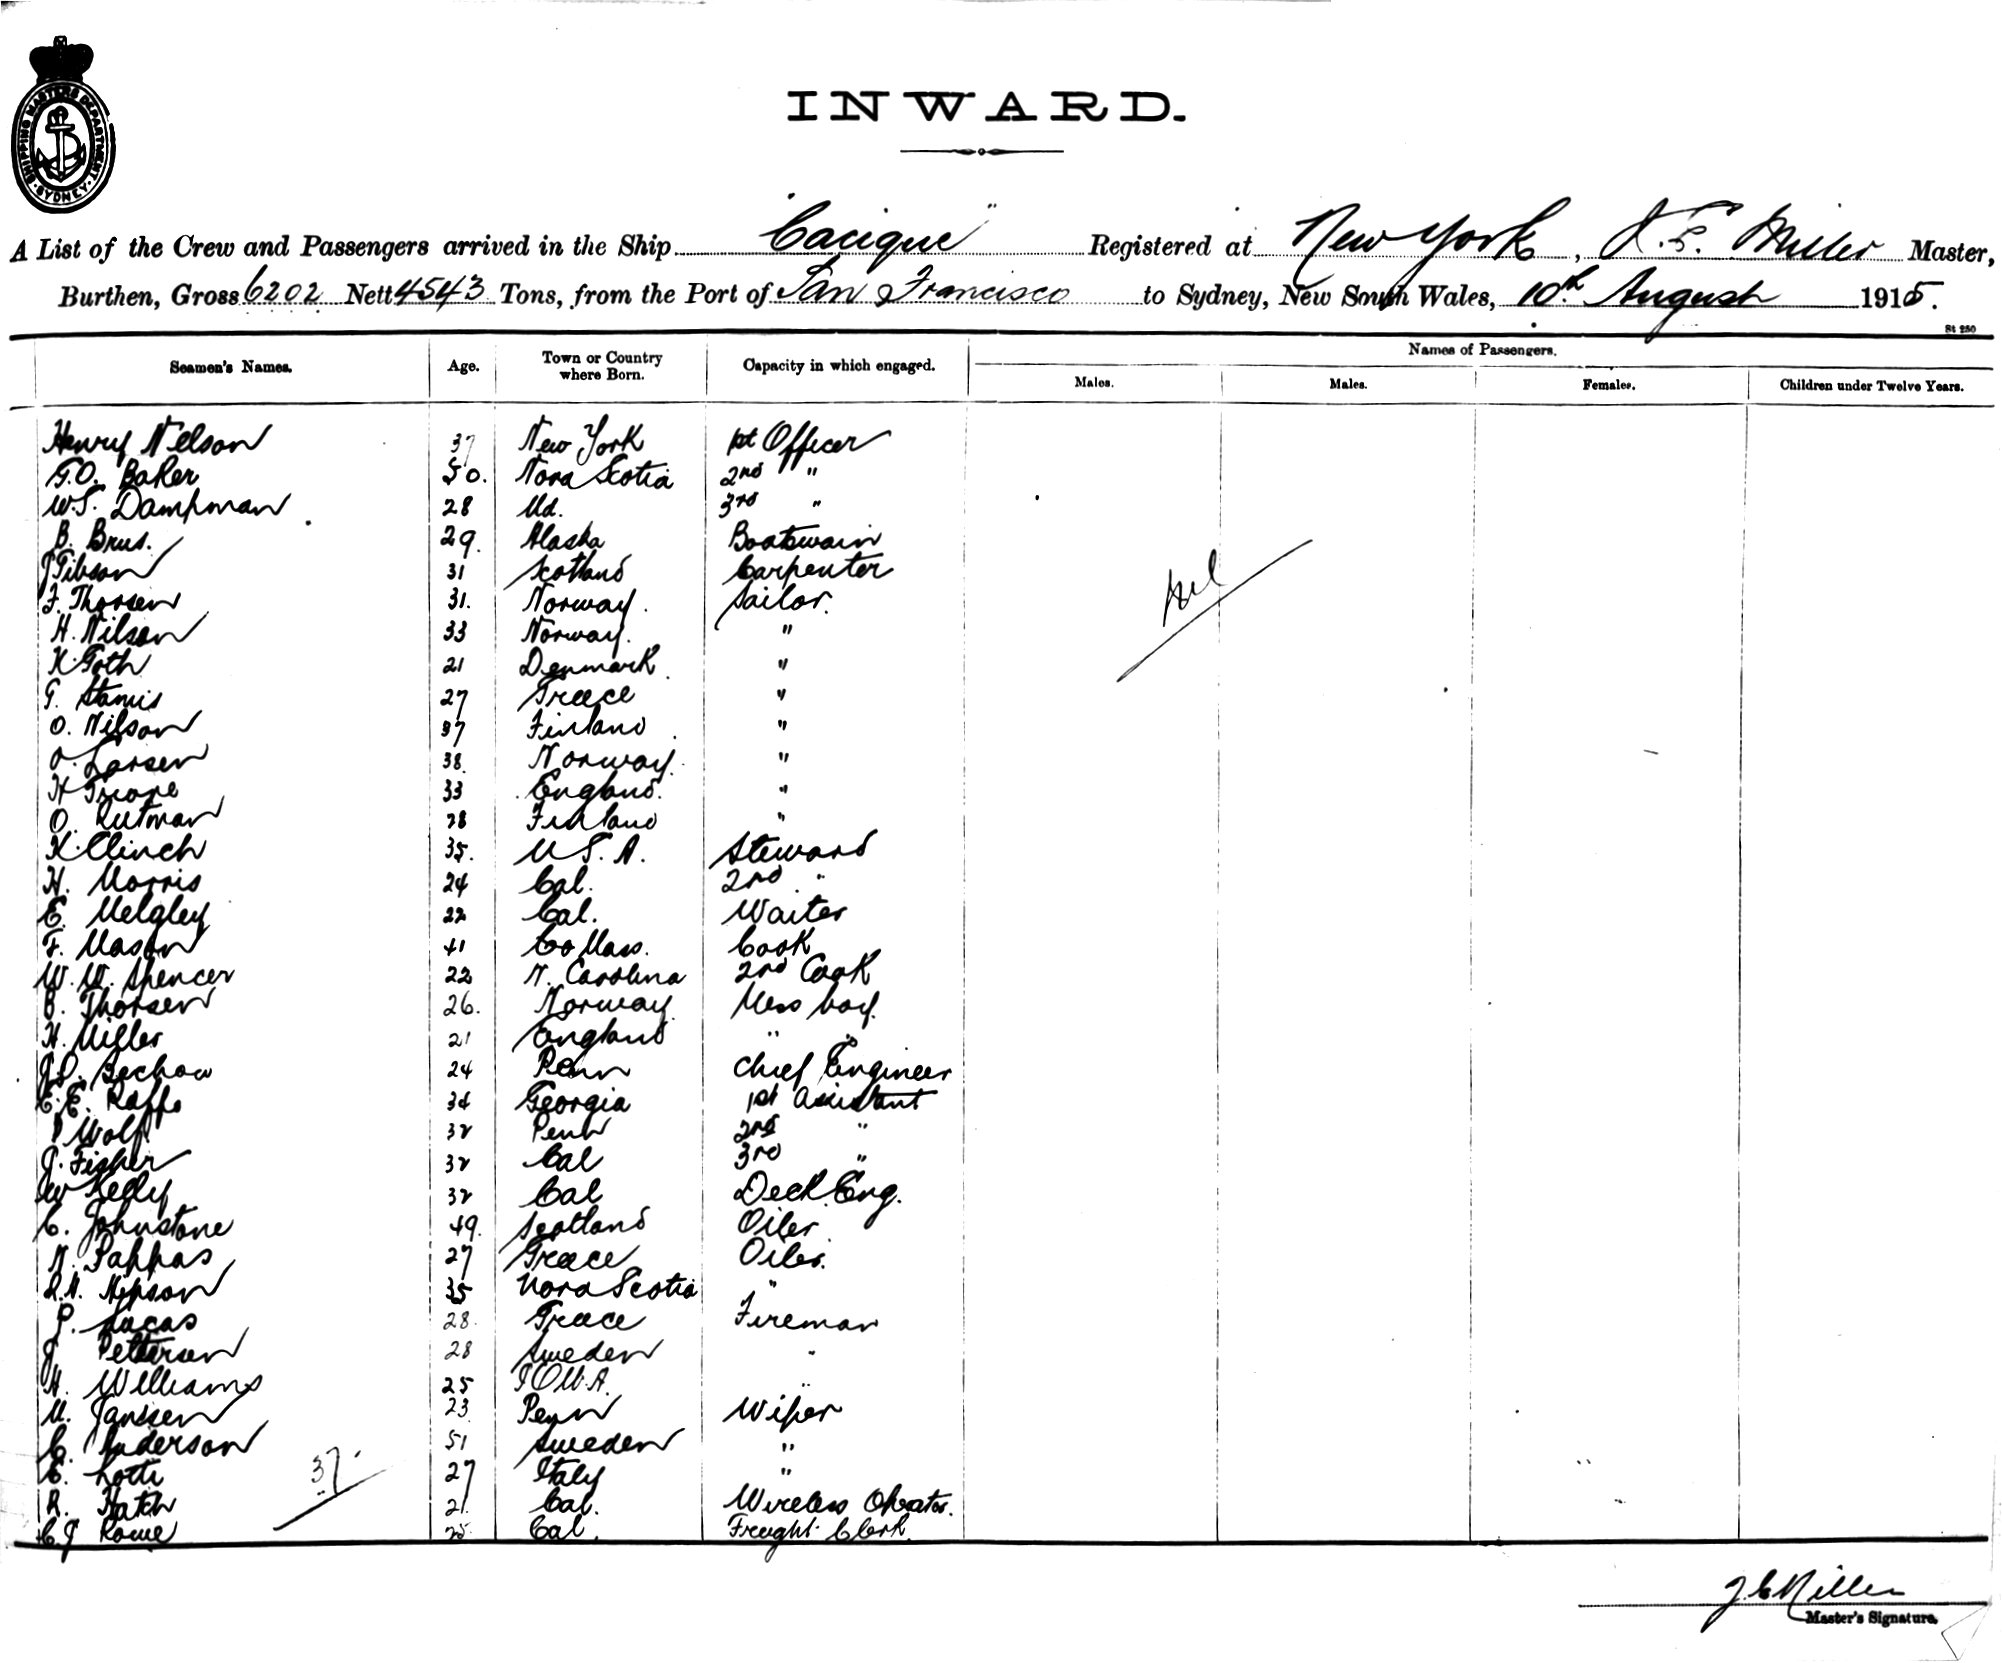 SHIPPING MASTERS DEPARTMENT
SYDNEY
INWARD.
A List of the Crew and Passengers arrived in the Ship "Cacique" Registered at New York, Miller Master,
Burthen, Gross 6202 Nett 4543 Tons, from the Port of San Francisco to Sydney, New South Wales, 10th August 1915.
St 250
Seamen's Names. Age. Town or Country where Born. Capacity in which engaged. Names of Passengers.
Males. Males. Females. Children under Twelve Years.
Henry Nelson 37 New York 1st Officer
G.O. Baker 50. Nova Scotia 2nd "
W.S. Dampman 28 Md. 3rd "
B. Brus. 29. Alaska Boatswain
J Gibson 31 Scotland Carpenter
F. Thorsen 31. Norway. Sailor.
H. Nilson 33 Norway. "
K. Goth 21 Denmark. "
G. Stamis 27 Greece "
O. Nilson 37 Finland. "
O. Larsen 38. Norway. "
H 33 England. "
O. Rutman 28 Finland "
K. Clinch 35. U.S.A. Steward
H. Morris 24 Cal. 2nd "
E. Melgley 22 Cal. Waiter
F. Mason 41 Mass. Cook
W. W. Spencer 22 N. Carolina 2nd Cook
B. Thorsen 26. Norway. Mess boy.
H. Miller 21 England " "
J.D. Bechow 24 Penn Chief Engineer
E. E. Raffo 34 Georgia 1st Assistant
P Wolf 32 Penn 2nd "
J. Fisher 32 Cal 3rd "
W Kelly 32 Cal Deck Eng.
C. Johnstone 49. Scotland Oiler
N. Pappas 27 Greece Oiler.
35 Nova Scotia "
P. Lucas 28. Greece Fireman
J Petterson 28 Sweden "
H. Williams 25 IOWA. "
M. Janssen 23 Penn Wiper
C. Anderson 51 Sweden "
E. Lotti 27 Italy "
R. Hatch 21. Cal. Wireless Operator.
C. J Rowe 25. Cal. Freight Clerk.
Nil
37.
Miller
Master's Signature.